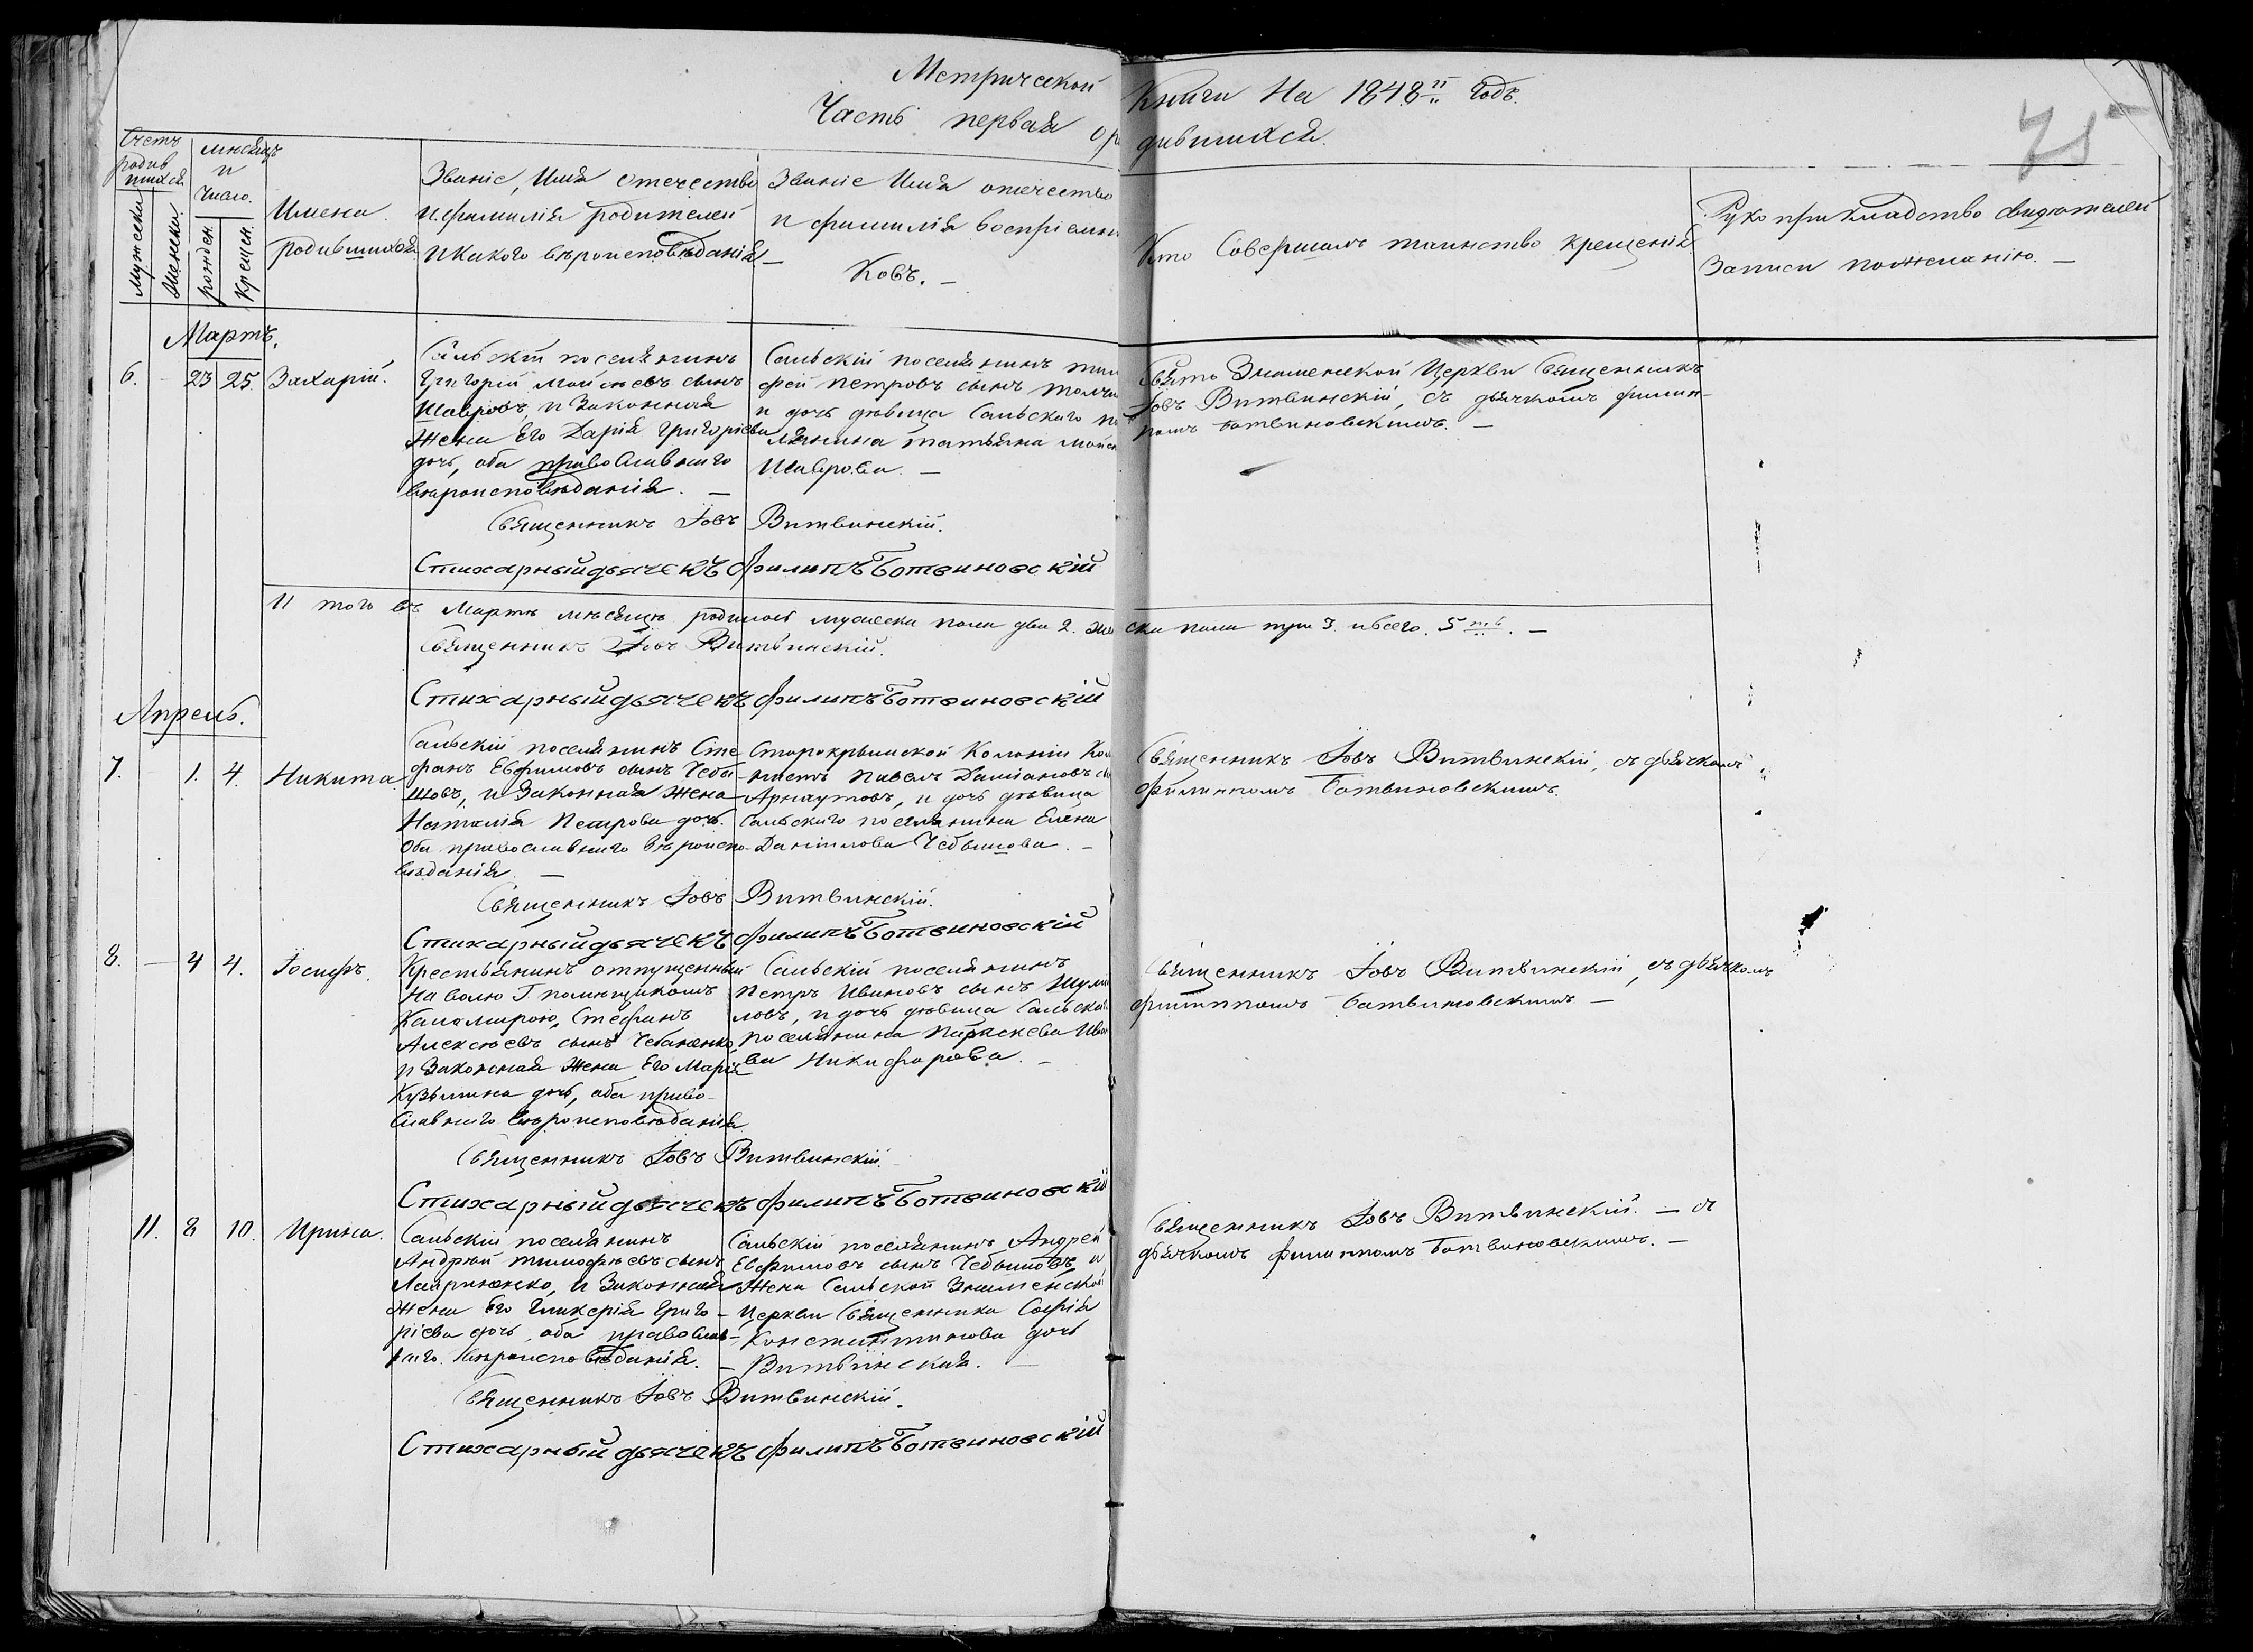 Метрической Книги На 1848й Годъ.
Часть первая о родившихся.
75
Счетъ родившихся
Мужеска
Женска
месяцъ и Число.
рожден.
Крещен.
Имена родившихся
Званіе, Имя Отечество
и фамилія родителей
и какого вѣроисповѣданія
Званіе Имя отечество
и фамилія воспріемни
ковъ. —
Кто Совершалъ таинство крещенія
Рукоприкладство свидѣтелей
Записи пожеланію. —
Мартъ.
6. — 23 25. Захарій.
Сальскій поселянинъ
Григорій Мойсѣевъ сынъ
Шавровъ, и Законная
Жена Его Дарія Григоріева
дочь, оба православнаго
вѣроисповѣданія. —
Сальскій поселянинъ тимо
фей Петровъ сынъ
и дочь дѣвица Сальскаго по
лянина татьяна мойсѣ
Шаврова. —
Свято Знаменской Церкви Священникъ
Іовъ Витвинскій, съ дьячкомъ филип-
помъ Ботвиновскимъ. —
Священникъ Іовъ Витвинскій.
Стихарный дьячекъ Филипъ Ботвиновскій
И того въ Мартѣ мѣсяцѣ родилось мужеска пола два 2. женска пола три 3. ивсего. 5ть. —
Священникъ Іовъ Витвинскій.
Стихарный дьячекъ Филипъ Ботвиновскій
Апрель.
7. — 1. 4. Никита
Сальскій поселянинъ Сте
фанъ Евфимовъ сынъ Чебы-
шовъ, и Законная Жена
Наталія Петрова дочь.
Оба православнаго вѣроиспо-
вѣданія. —
Старокрымской Колоніи Коло
нистъ Павелъ Даміановъ сы
Арнаутовъ, и дочь дѣвица
Сальскаго поселянина Елена
Даніилова Чебышова. —
Священникъ Іовъ Витвинскій, съ дьячкомъ
Филиппомъ Ботвиновскимъ.
Священникъ Іовъ Витвинскій.
Стихарный дьячекъ Филипъ Ботвиновскій
8. — 4 4. Іосифъ.
Крестьянинъ отпущенный
На волю Г помещикомъ
Капамирою, Стефанъ
Алексѣевъ сынъ
и Законная Жена Его Марія
Кузьмина дочь, оба право-
славнаго вѣроисповѣданія
Сальскій поселянинъ
Петръ Ивановъ сынъ Шумі
ловъ, и дочь дѣвица Сальскаго
поселянина Параскева Ивано
ва Никифорова. —
Священникъ Іовъ Витвинскій, съ дьячкомъ
филиппомъ Ботвиновскимъ —
Священникъ Іовъ Витвинскій.
Стихарный дьячекъ Филипъ Ботвиновскій
11. 8 10. Ирина.
Сальскій поселянинъ
Андрѣй тимофѣевъ сынъ
Лавриненко, и Законная
Жена Его Гликерія Григо-
ріева дочь, оба православ-
наго вѣроисповѣданія. —
Сальскій поселянинъ Андрей
Евфимовъ сынъ Чебышовъ, и
Жена Сальской Знаменской
Церкви Священника Софія
Константинова дочь
Витвинская. —
Священникъ Іовъ Витвинскій. — съ
дьячкомъ Филиппомъ Ботвиновскимъ. —
Священникъ Іовъ Витвинскій.
Стихарный дьячекъ Филипъ Ботвиновскій